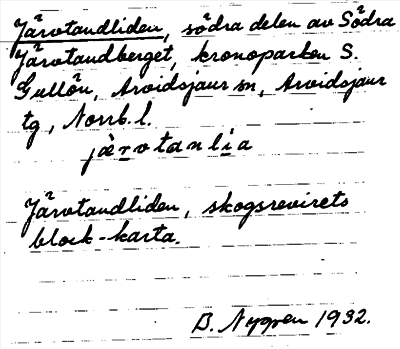 Järvtandliden, södra delen av Södra
Järvtandberget, kronoparken S.
Gullön, Arvidsjaur sn, Arvidsjaur
tg, Norrb. l.
järvtanlia
Järvtandliden, skogsrevirets
block-karta.
B. Nygren 1932.